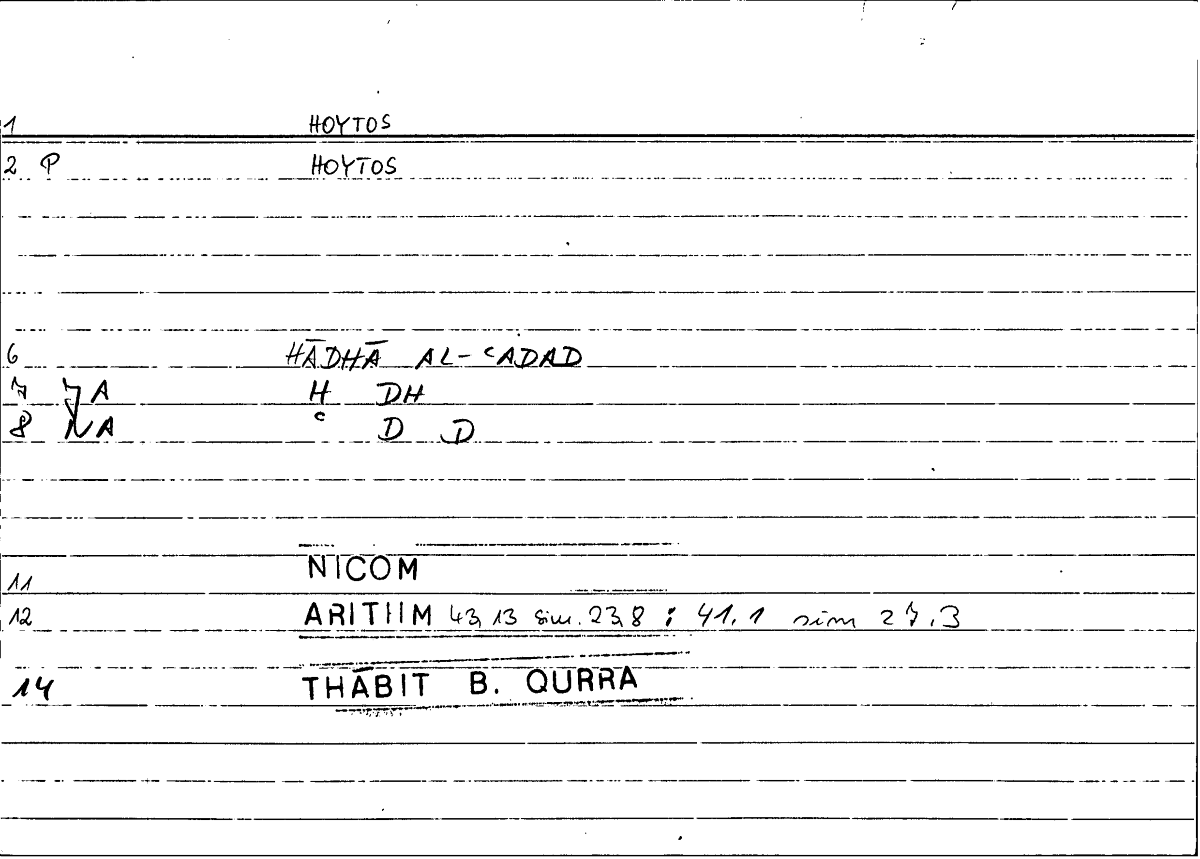 1 HOYTOS
2 P HOYTOS
6 HĀDHĀ AL-ʿADAD
7 7A H DH
8 NA ʿ D D
11 NICOM
12 ARITHM 43,13 sim. 23,8 ; 41.1 sim 27.3
14 THĀBIT B. QURRA